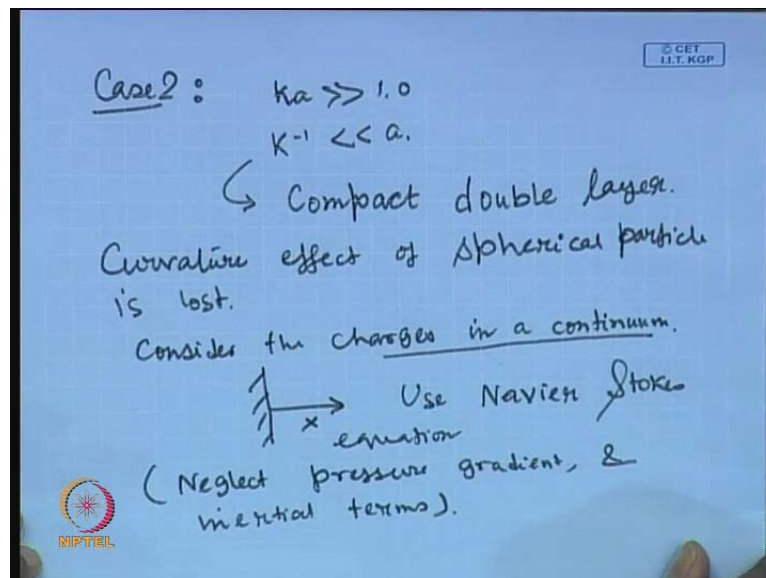 © CET
I.I.T. KGP
Case2 : Ka >> 1.0
K⁻¹ << a.
↳ Compact double layer.
Curvature effect of spherical particle
is lost.
Consider the charges in a continuum.
x Use Navier Stokes
equation
(Neglect pressure gradient, &
inertial terms).
NPTEL